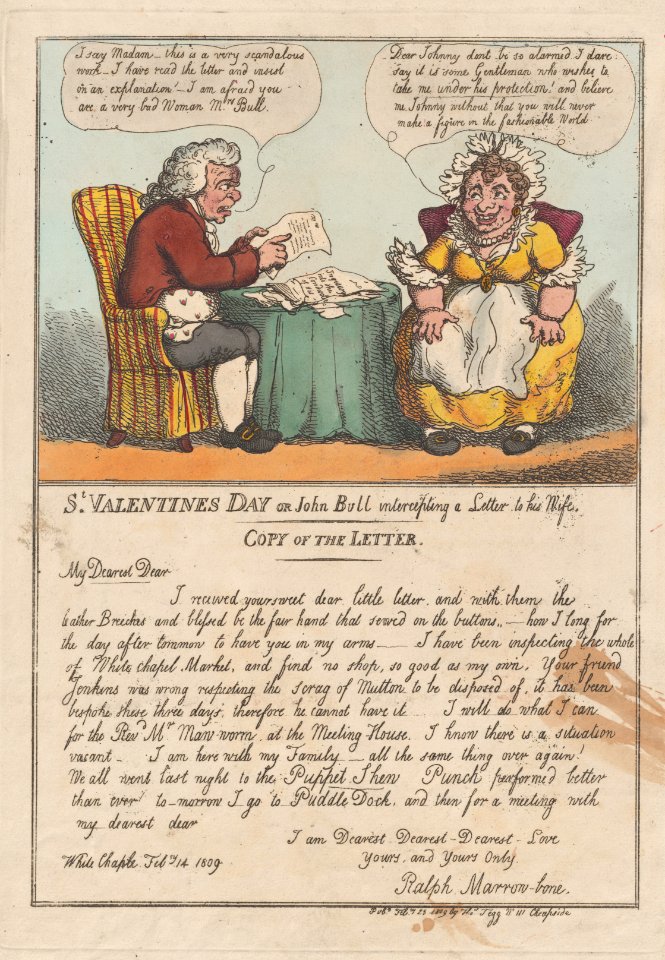 I say Madam – this is a very scandalous
work – I have read the letter and insist
on an explanation! – I am afraid you
are a very bad Woman Mrs Bull.
Dear Johnny dont be so alarmed I dare
say it is some Gentleman who wishes to
take me under his protection! and believe
me Johnny without that you will never
make a figure in the fashionable World
St. VALENTINES DAY OR John Bull intercepting a Letter to his Wife.
COPY OF THE LETTER.
My Dearest Dear
I received your sweet dear little letter and with them the
leather Breeches and blessed be the fair hand that sewed on the buttons,, – how I long for
the day after tommorow to have you in my arms — I have been inspecting the whole
of White chapel Market, and find no shop, so good as my own. Your friend
Jenkins was wrong respecting the scrag of Mutton to be disposed of, it has been
bespoke these three days, therefore he cannot have it – I will do what I can
for the Revd. Mr Maw-worm at the Meeting House. I know there is a situation
vacant – I am here with my Family – all the same thing over again!
We all went last night to the Puppet Shew Punch performed better
than ever to-morrow I go to Puddle Dock, and then for a meeting with
my dearest dear
I am Dearest Dearest – Dearest – Love
Yours, and Yours Only
White Chaple Feby. 14 1809
Ralph Marrow-bone.
Pubd. Feby. 28 1809 by Thos. Tegg No 111 Cheapside